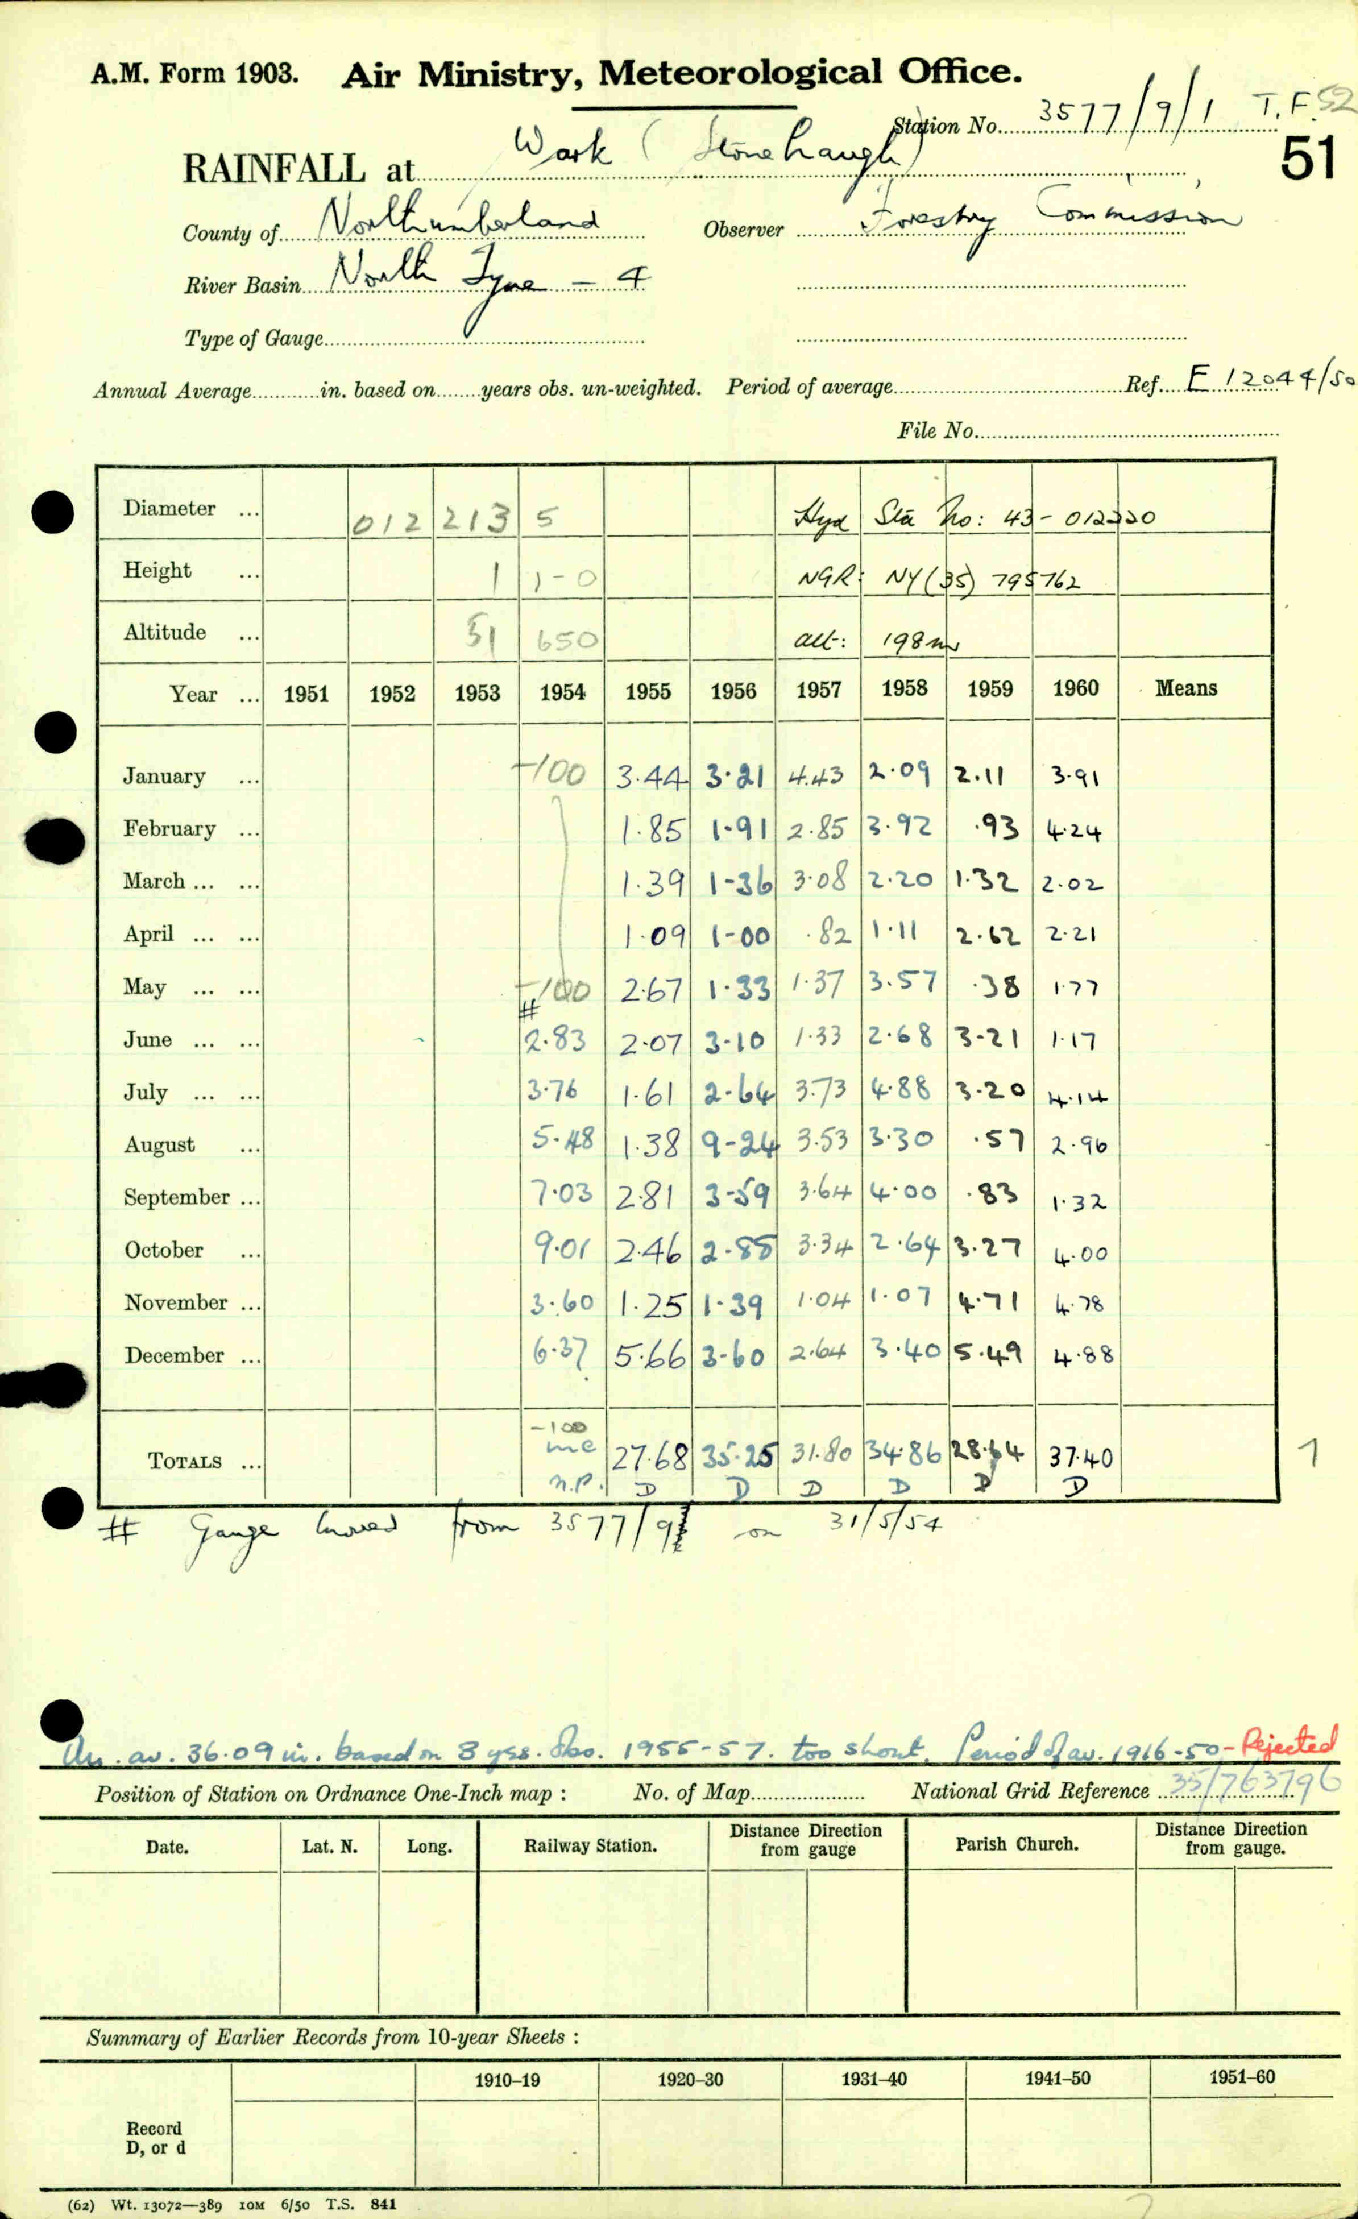 A.M. Form 1903. Air Ministry, Meteorological Office.
Station No. 3577/9/1 T.F. 52
51
RAINFALL at Wark (Stonehaugh)
County of Northumberland Observer Forestry Commission
River Basin North Tyne – 4
Type of Gauge
Annual Average in. based on years obs. un-weighted. Period of average Ref. E 12044/50
File No.
Diameter ... 012 213 5 Hyd Sta No: 43-012220
Height ... 1 1-0 NGR: NY(35) 795762
Altitude ... 51 650 alt: 198m
Year ... 1951 1952 1953 1954 1955 1956 1957 1958 1959 1960 Means
January ... -100 3.44 3.21 4.43 2.09 2.11 3.91
February ... 1.85 1.91 2.85 3.92 .93 4.24
March ... ... 1.39 1-36 3.08 2.20 1.32 2.02
April ... ... 1.09 1-00 .82 1.11 2.62 2.21
May ... ... -100 2.67 1.33 1.37 3.57 .38 1.77
#
June ... ... 2.83 2.07 3-10 1.33 2.68 3-21 1.17
July ... ... 3.76 1.61 2-64 3.73 4.88 3.20 4.14
August ... 5.48 1.38 9-24 3.53 3.30 .57 2.96
September ... 7.03 2.81 3-59 3.64 4.00 .83 1.32
October ... 9.01 2.46 2-88 3.34 2.64 3.27 4.00
November ... 3.60 1.25 1.39 1.04 1.07 4.71 4.78
December ... 6.37 5.66 3-60 2.64 3.40 5.49 4.88
-100
TOTALS ... inc 27.68 35.25 31.80 34.86 28.64 37.40 1
n.p. D D D D D D
# Gauge moved from 3577/9 on 31/5/54
An. av. 36.09 in. based on 3 yrs. obs. 1955-57. too short. Period of av. 1916-50 - Rejected
Position of Station on Ordnance One-Inch map : No. of Map National Grid Reference 35/763796
Date. Lat. N. Long. Railway Station. Distance Direction from gauge Parish Church. Distance Direction from gauge.
Summary of Earlier Records from 10-year Sheets :
1910–19 1920–30 1931–40 1941–50 1951–60
Record
D, or d
(62) Wt. 13072—389 10M 6/50 T.S. 841